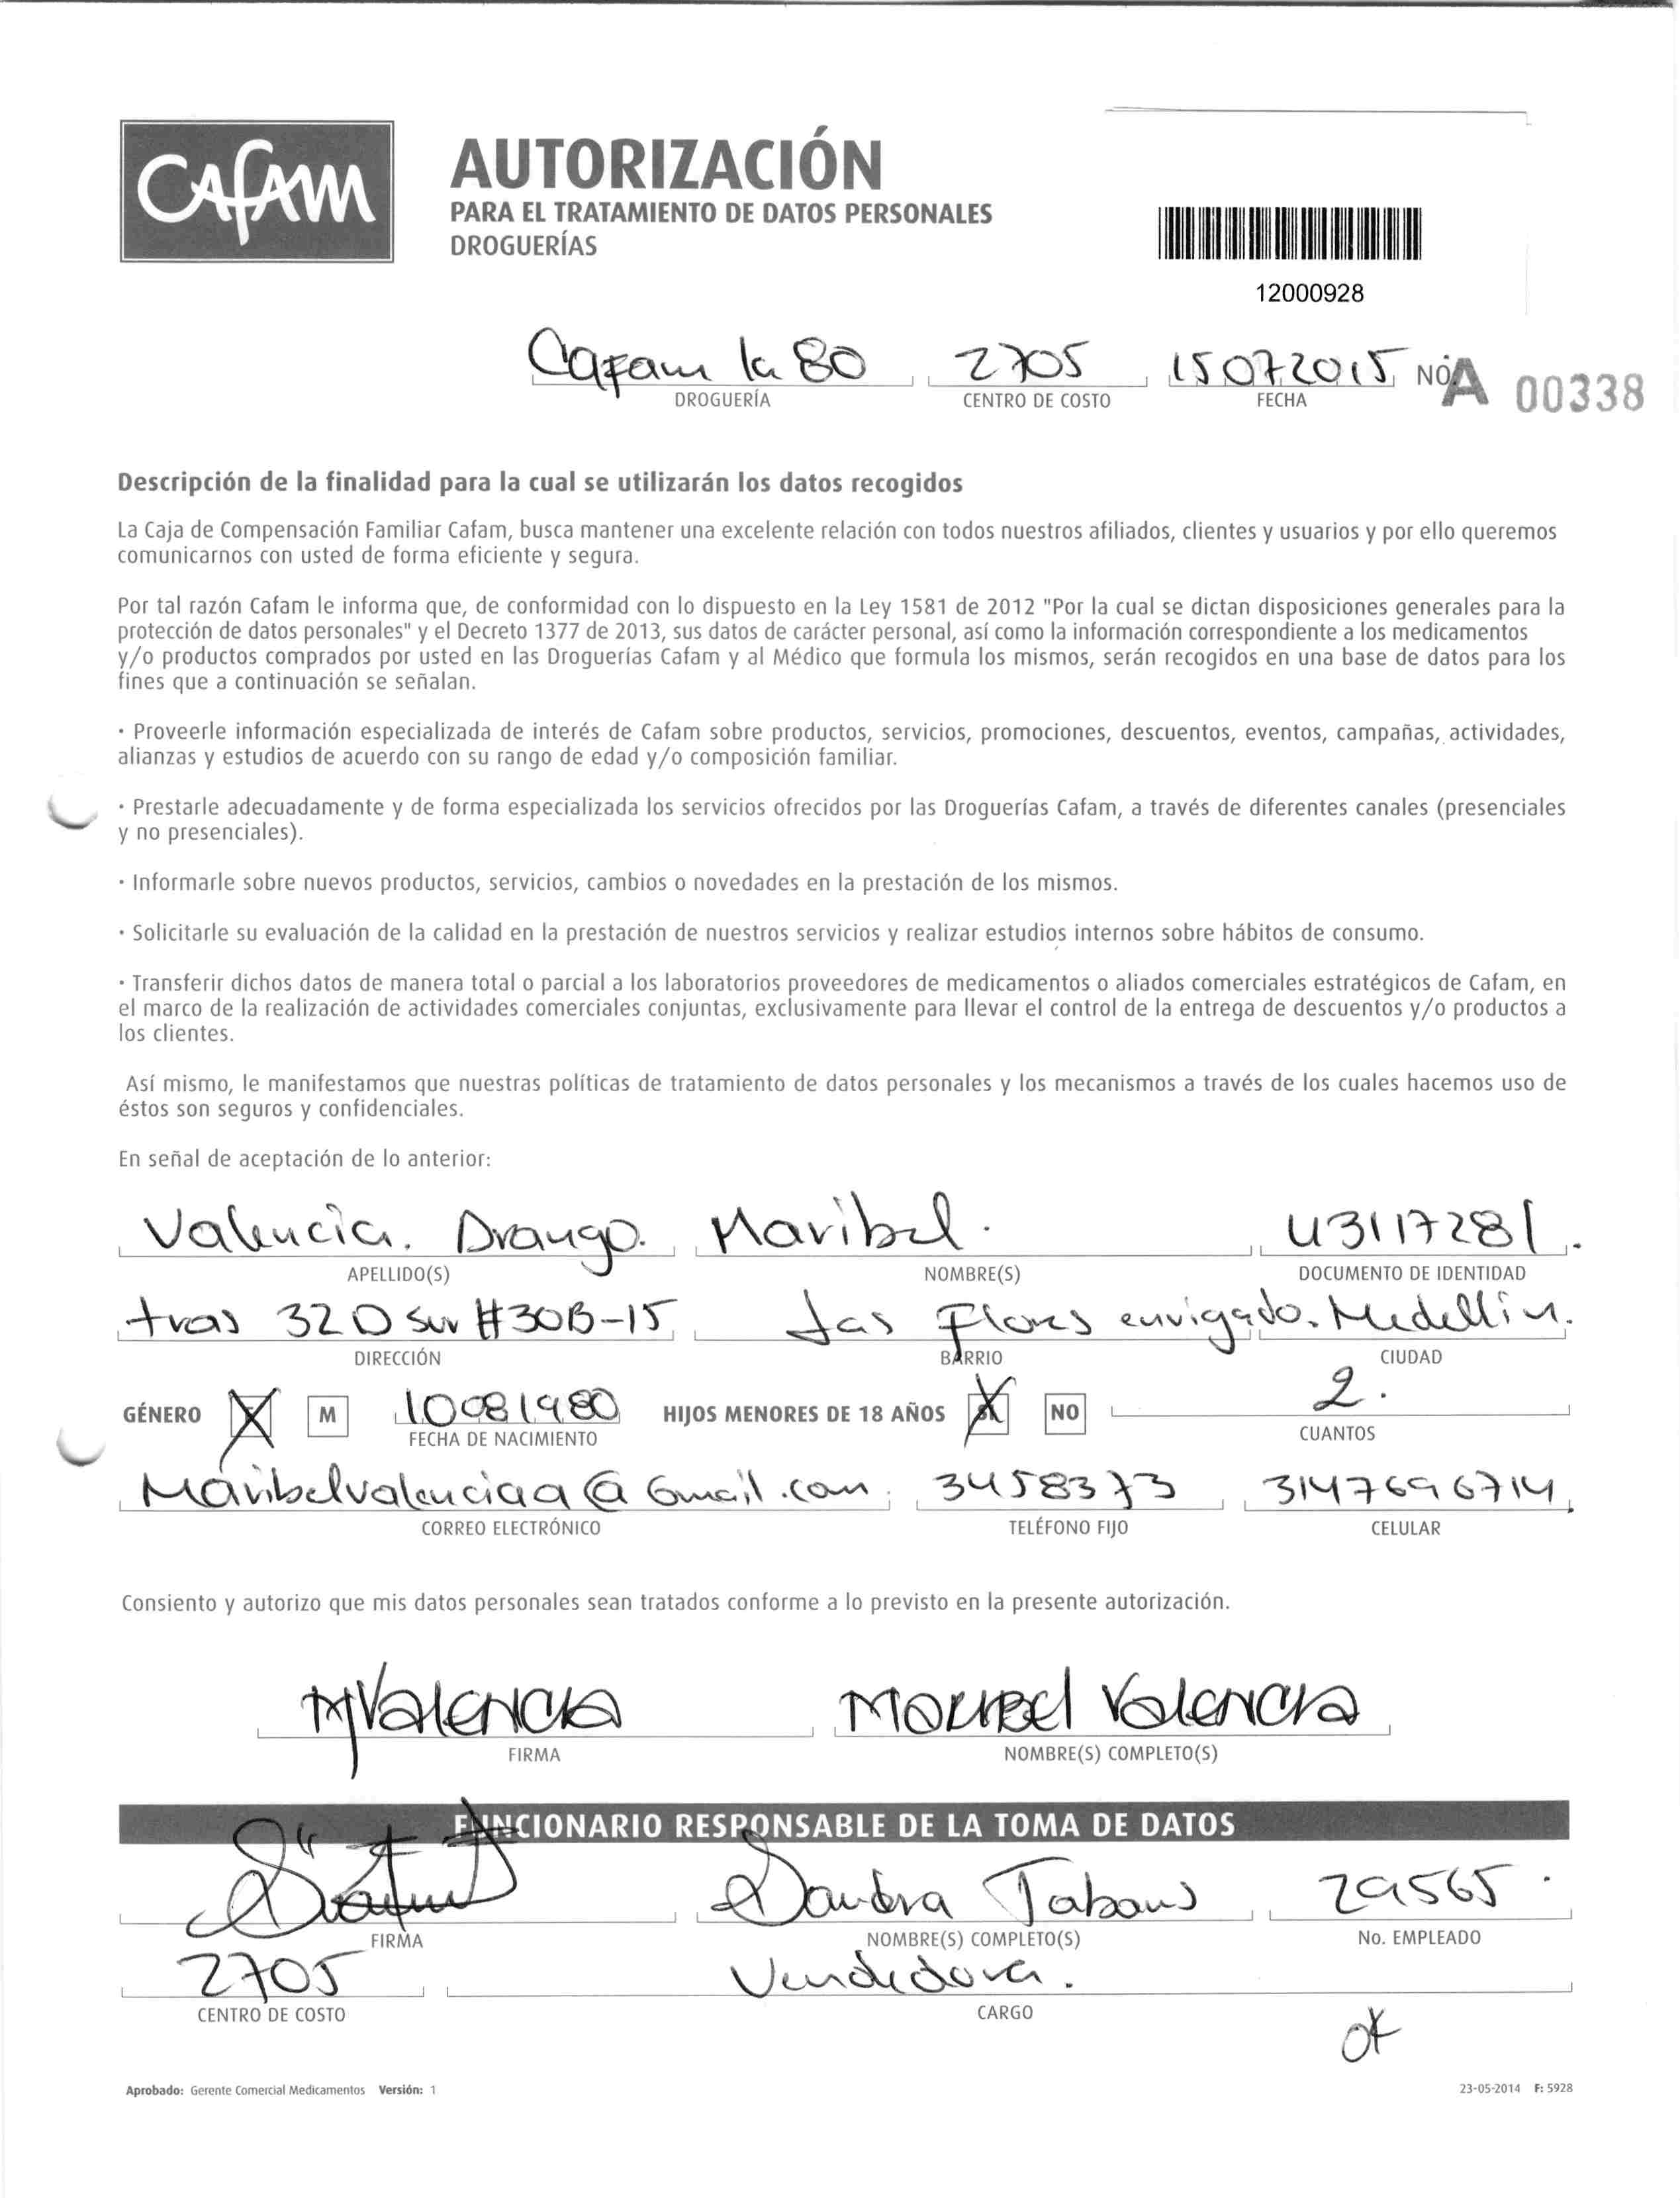 CAFAM
AUTORIZACIÓN
PARA EL TRATAMIENTO DE DATOS PERSONALES
DROGUERÍAS
12000928
Cafam la 80 2705 15072015 NO. A 00338
DROGUERÍA CENTRO DE COSTO FECHA
Descripción de la finalidad para la cual se utilizarán los datos recogidos
La Caja de Compensación Familiar Cafam, busca mantener una excelente relación con todos nuestros afiliados, clientes y usuarios y por ello queremos
comunicarnos con usted de forma eficiente y segura.
Por tal razón Cafam le informa que, de conformidad con lo dispuesto en la Ley 1581 de 2012 "Por la cual se dictan disposiciones generales para la
protección de datos personales" y el Decreto 1377 de 2013, sus datos de carácter personal, así como la información correspondiente a los medicamentos
y/o productos comprados por usted en las Droguerías Cafam y al Médico que formula los mismos, serán recogidos en una base de datos para los
fines que a continuación se señalan.
· Proveerle información especializada de interés de Cafam sobre productos, servicios, promociones, descuentos, eventos, campañas, actividades,
alianzas y estudios de acuerdo con su rango de edad y/o composición familiar.
· Prestarle adecuadamente y de forma especializada los servicios ofrecidos por las Droguerías Cafam, a través de diferentes canales (presenciales
y no presenciales).
· Informarle sobre nuevos productos, servicios, cambios o novedades en la prestación de los mismos.
· Solicitarle su evaluación de la calidad en la prestación de nuestros servicios y realizar estudios internos sobre hábitos de consumo.
· Transferir dichos datos de manera total o parcial a los laboratorios proveedores de medicamentos o aliados comerciales estratégicos de Cafam, en
el marco de la realización de actividades comerciales conjuntas, exclusivamente para llevar el control de la entrega de descuentos y/o productos a
los clientes.
Así mismo, le manifestamos que nuestras políticas de tratamiento de datos personales y los mecanismos a través de los cuales hacemos uso de
éstos son seguros y confidenciales.
En señal de aceptación de lo anterior:
Valencia. Arango. Maribel. 43117281.
APELLIDO(S) NOMBRE(S) DOCUMENTO DE IDENTIDAD
tras 32D Sur #30B-15 Las Flores envigado. Medellin.
DIRECCIÓN BARRIO CIUDAD
GÉNERO M 10081980 HIJOS MENORES DE 18 AÑOS NO 2.
FECHA DE NACIMIENTO CUANTOS
Maribelvalenciaa@Gmail.com. 3458373 3147696714.
CORREO ELECTRÓNICO TELÉFONO FIJO CELULAR
Consiento y autorizo que mis datos personales sean tratados conforme a lo previsto en la presente autorización.
MValencia Maribel Valencia
FIRMA NOMBRE(S) COMPLETO(S)
FUNCIONARIO RESPONSABLE DE LA TOMA DE DATOS
Sandra 29565.
FIRMA NOMBRE(S) COMPLETO(S) No. EMPLEADO
2705 Vendedora.
CENTRO DE COSTO CARGO
ok
Aprobado: Gerente Comercial Medicamentos Versión: 1 23-05-2014 F: 5928